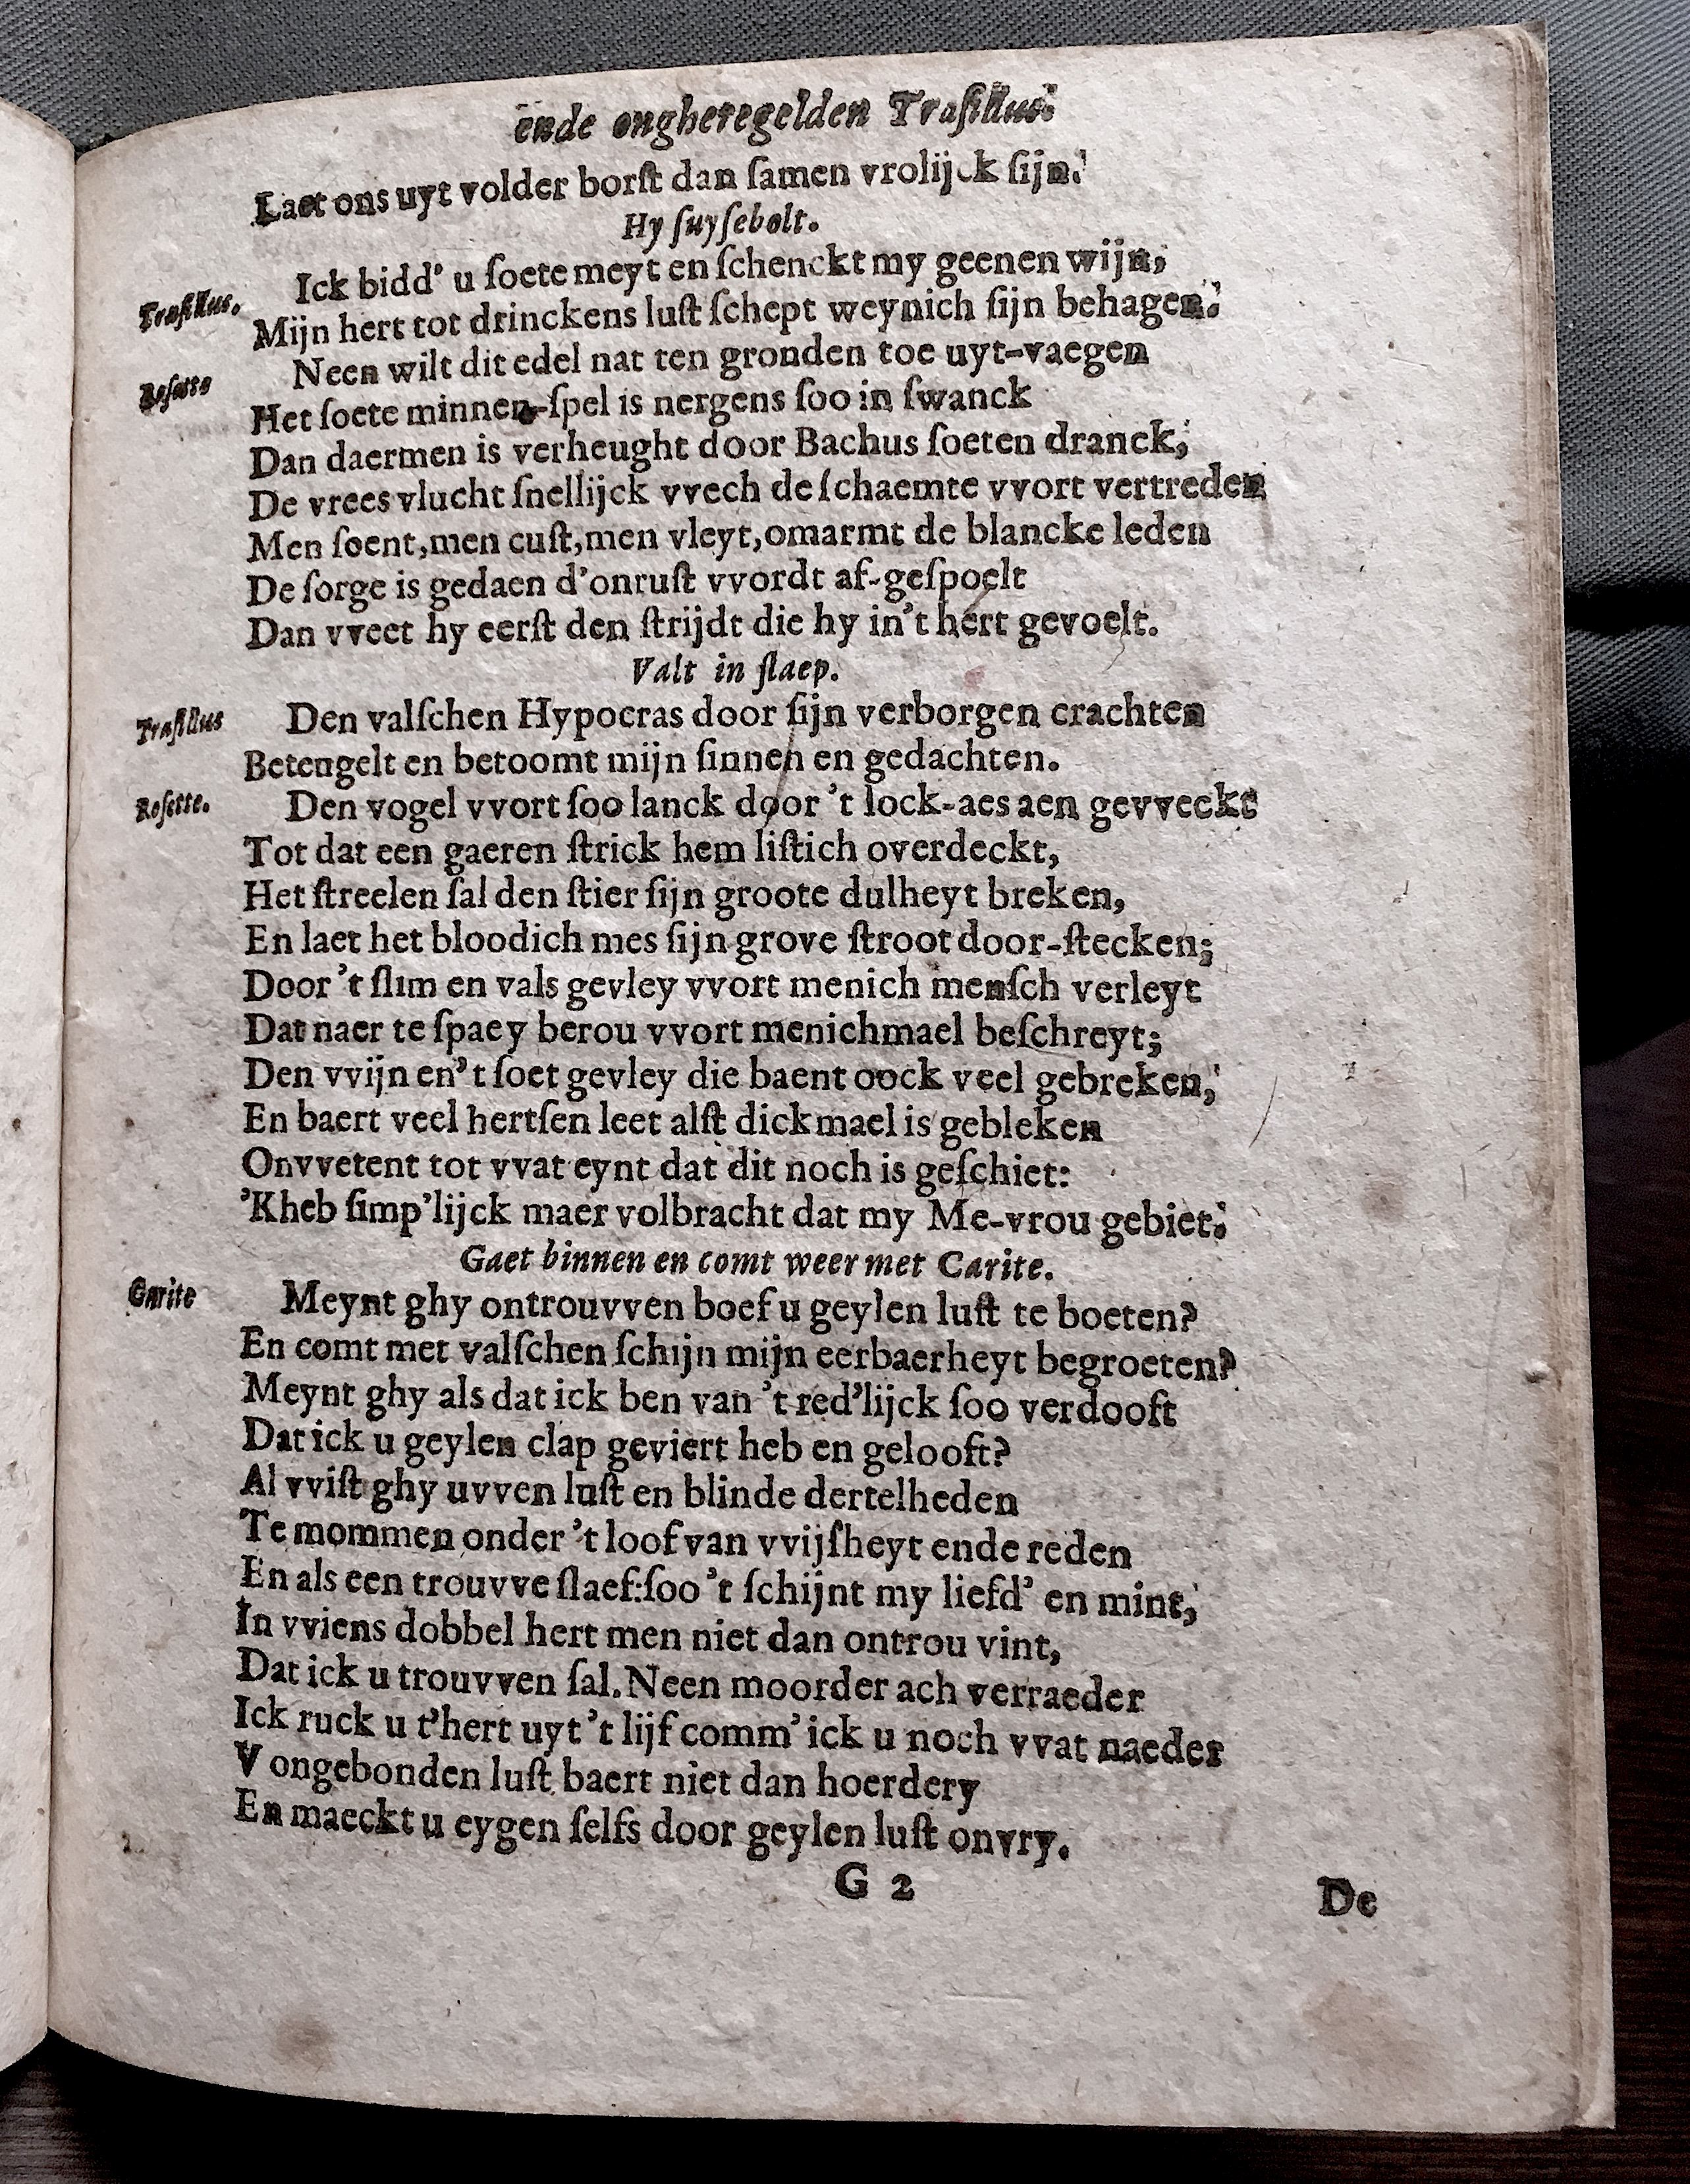 ende ongheregelden Traſillus.
Laet ons uyt volder borſt dan ſamen vrolijck ſijn.
Hy ſuyſebolt.
Traſillus. Ick bidd' u ſoete meyt en ſchenckt my geenen wijn,
Mijn hert tot drinckens luſt ſchept weynich ſijn behagen.
Roſette Neen wilt dit edel nat ten gronden toe uyt-vaegen
Het ſoete minnen-ſpel is nergens ſoo in ſwanck
Dan daermen is verheught door Bachus ſoeten dranck,
De vrees vlucht ſnellijck vvech de ſchaemte vvort vertreden
Men ſoent,men cuſt,men vleyt,omarmt de blancke leden
De ſorge is gedaen d'onruſt vvordt af-geſpoelt
Dan vveet hy eerſt den ſtrijdt die hy in't hert gevoelt.
Valt in ſlaep.
Traſillus Den valſchen Hypocras door ſijn verborgen crachten
Betengelt en betoomt mijn ſinnen en gedachten.
Roſette. Den vogel vvort ſoo lanck door 't lock-aes aen gevveckt
Tot dat een gaeren ſtrick hem liſtich overdeckt,
Het ſtreelen ſal den ſtier ſijn groote dulheyt breken,
En laet het bloodich mes ſijn grove ſtroot door-ſtecken;
Door 't ſlim en vals gevley vvort menich menſch verleyt
Dat naer te ſpaey berou vvort menichmael beſchreyt;
Den vvijn en't ſoet gevley die baent oock veel gebreken,
En baert veel hertſen leet alſt dickmael is gebleken
Onvvetent tot vvat eynt dat dit noch is geſchiet:
'Kheb ſimp'lijck maer volbracht dat my Me-vrou gebiet.
Gaet binnen en comt weer met Carite.
Carite Meynt ghy ontrouvven boef u geylen luſt te boeten?
En comt met valſchen ſchijn mijn eerbaerheyt begroeten?
Meynt ghy als dat ick ben van 't red'lijck ſoo verdooft
Dat ick u geylen clap geviert heb en gelooft?
Al vviſt ghy uvven luſt en blinde dertelheden
Te mommen onder 't loof van vvijſheyt ende reden
En als een trouvve ſlaef:ſoo 't ſchijnt my liefd' en mint,
In vviens dobbel hert men niet dan ontrou vint,
Dat ick u trouvven ſal. Neen moorder ach verraeder
Ick ruck u t'hert uyt 't lijf comm' ick u noch vvat naeder
V ongebonden luſt baert niet dan hoerdery
En maeckt u eygen ſelfs door geylen luſt onvry.
G 2
De